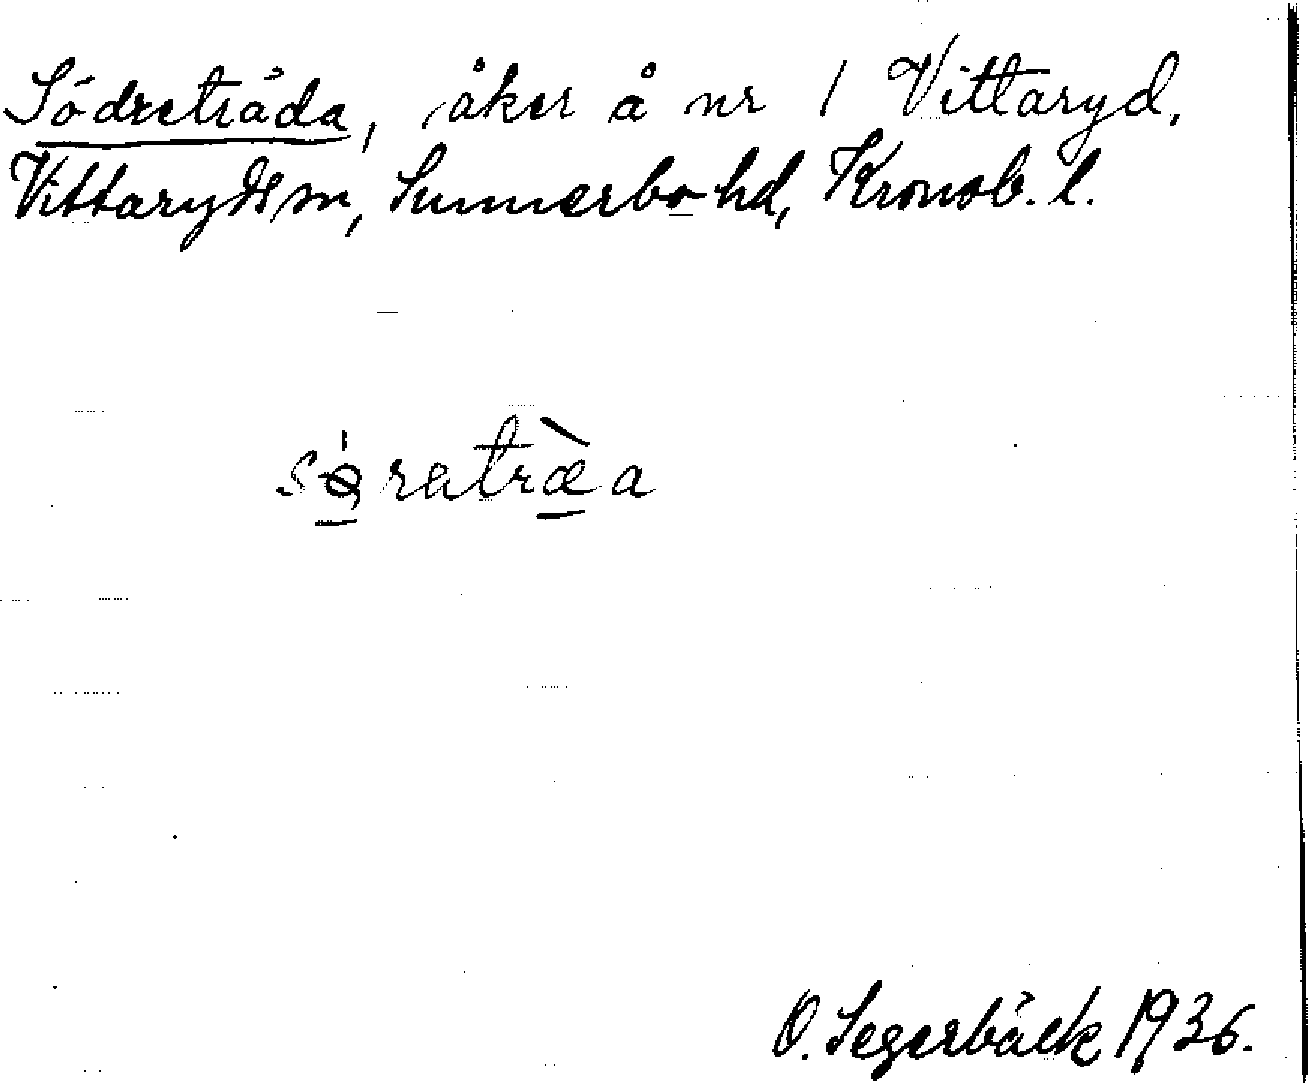 Södreträda, åker å nr 1 Vittaryd,
Vittaryds sn, Sunnerbo hd, Kronob. l.
sø̀ratræ̀a
O. Segerbäck 1936.